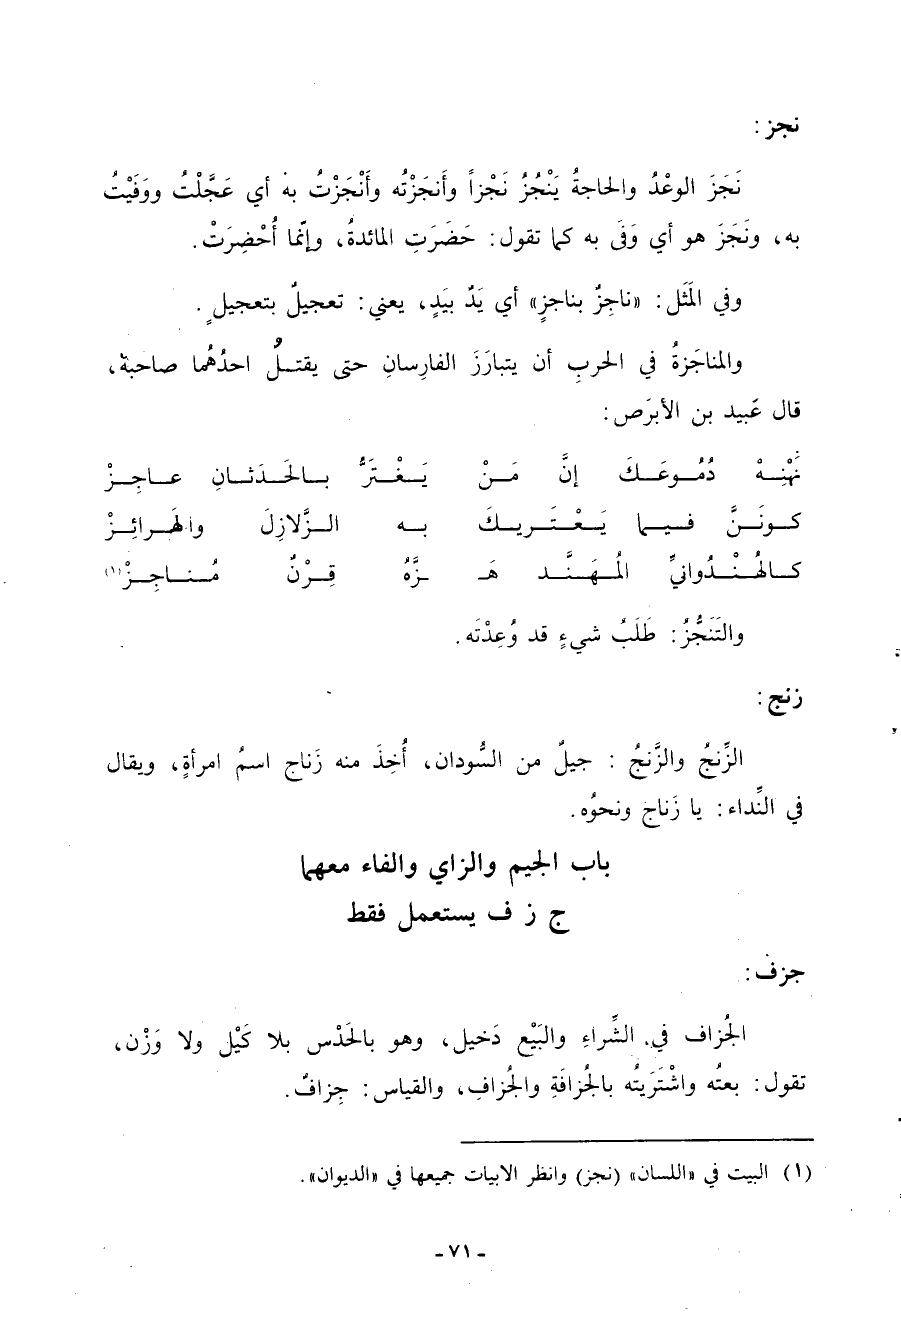 نجز :
نَجَزَ الوعْدُ والحاجةُ يَنْجُزُ نَجْزاً وأَنجَزْتُه وأَنْجَزْتُ به أي عَجَّلْتُ ووَفَيْتُ
به، ونَجَزَ هو أي وَفَى به كما تقول: حَضَرَتِ المائدةُ، وإنَّما أُحْضِرَتْ.
وفي المَثَل : «ناجِزٌ بناجزٍ» أي يَدٌ بيَدٍ، يعني: تعجيلٌ بتعجيلٍ .
والمناجَزةُ في الحربِ أن يتبارَزَ الفارِسانِ حتى يقتـلُ احدُهُما صاحبهَ،
قال عَبيد بن الأبرَص:
نَهْنِـه دُمُـوعَـكَ إنَّ مَـنْ يَـغْـتَـرُّ بـالحَـدَثـانِ عـاجِـزْ
كـونَـنَّ فـيـا يَـعْـتَـريـكَ بـه الـزَّلازِلَ والهَـرائِـزْ
كـالهُـنْـدُوانيِّ المُـهَـنَّـد هَـ ـزَّهُ قِـرْنٌ مُـنـاجِـزْ(١)
والتَنَجُّزُ: طَلَبُ شيءٍ قد وُعِدْتَه .
زنج :
الزِّنجُ والزَّنجُ : جيلٌ من السُّودان، أُخِذَ منه زَناج اسمُ امرأةٍ، ويقال
في النِّداء : يا زَناج ونحوُه.
باب الجيم والزاي والفاء معهما
ج ز ف يستعمل فقط
جزف :
الجُزاف في الشِّراءِ والبَيْع دَخيل، وهو بالحَدْس بلا كَيْل ولا وَزْن،
تقول: بعتُه واشْتَرَيتُه بالجُزافَةِ والجُزافِ، والقياس: جِزافٌ.
(١) البيت في «اللسان» (نجز) وانظر الابيات جميعها في «الديوان».
- ٧١ -